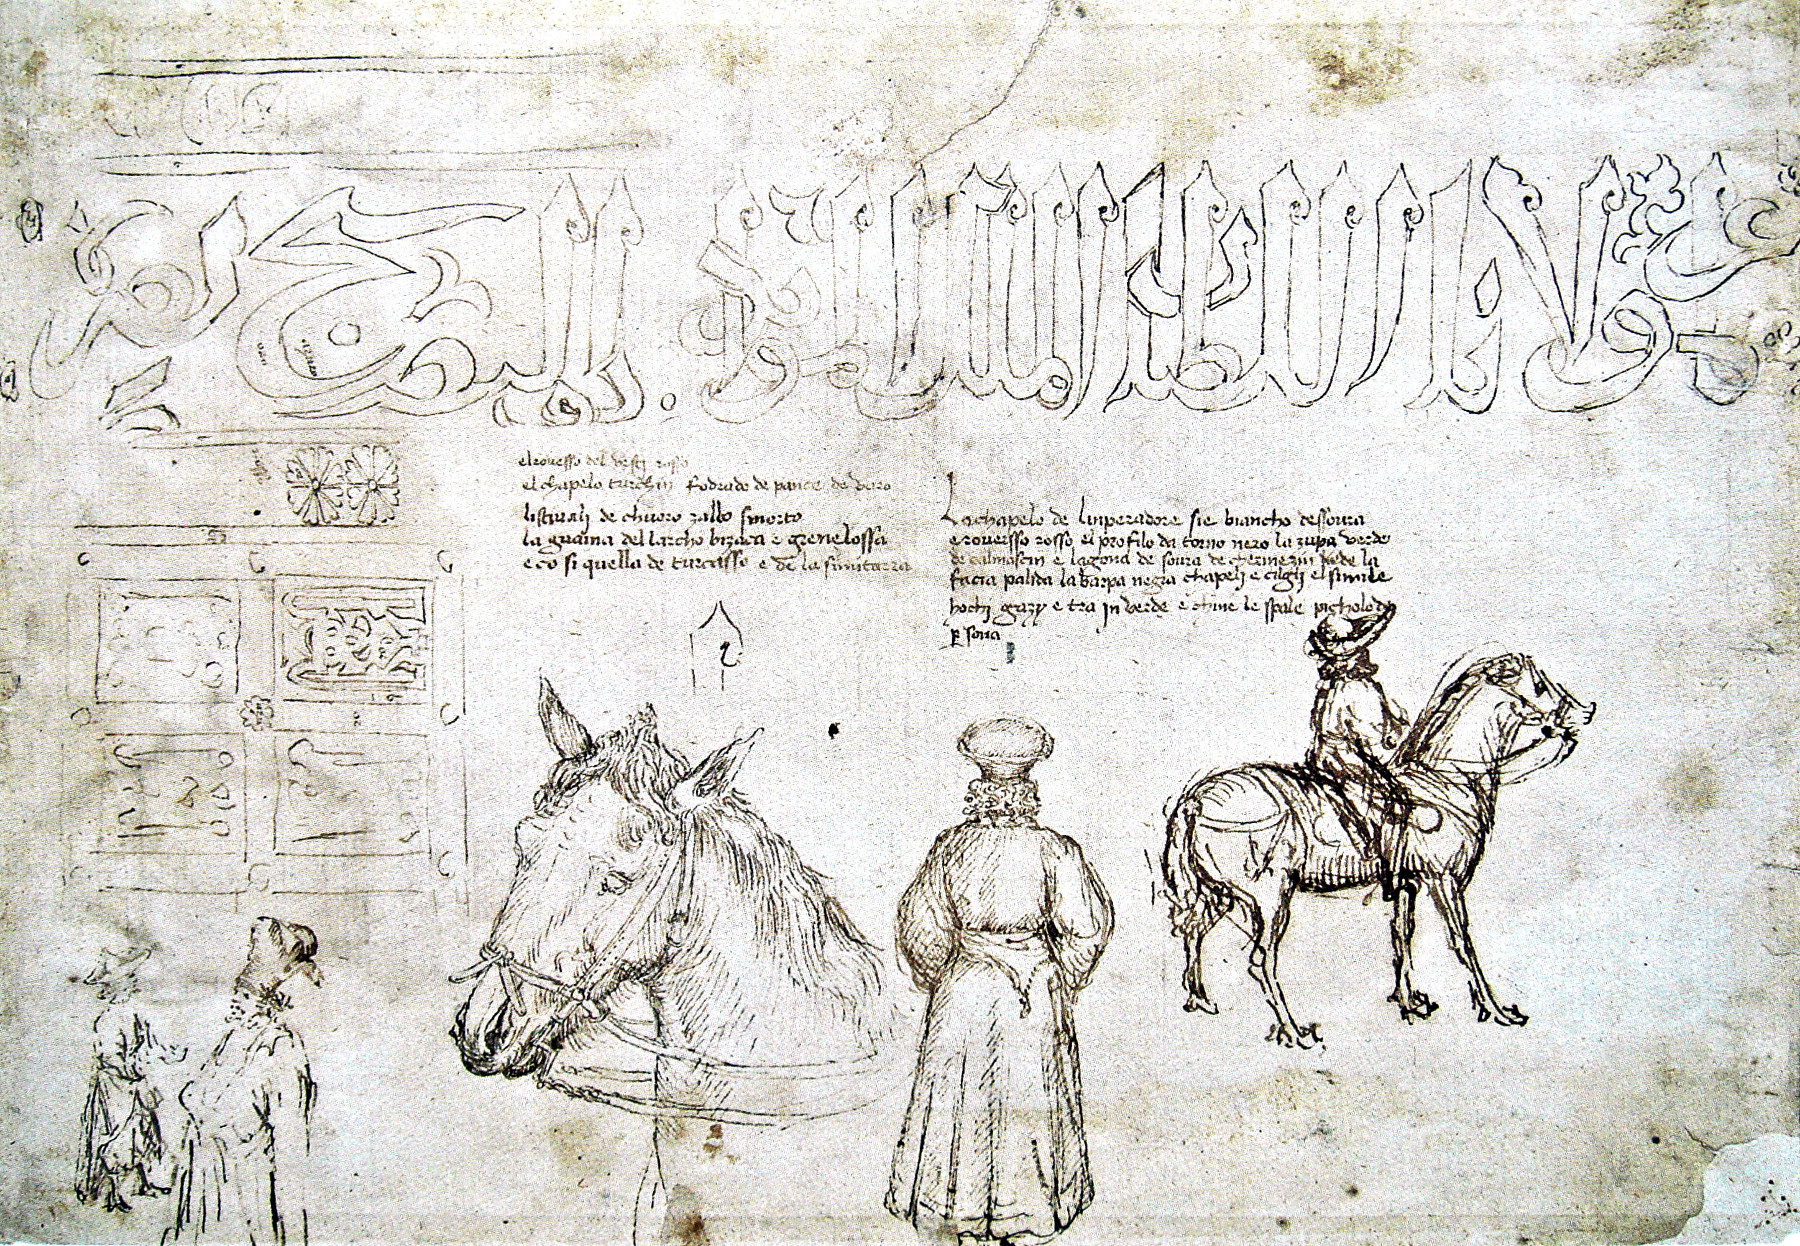 عز لمولانا السلطان الملك المؤيد
el rovesso del vesti rosso
el chapelo turchin fodrado de panze de vero
listivali de chuoro zallo smorto
la guaina del larcho bizaca e grenelossa
e co si quella de turcasso e de la simitarra
Lo chapelo de linperadore sie biancho dessoura
e roversso rosso el profilo da torno nero la zupa verde
de dalmaschin e la gona de soura de chermezin
facia palida la barpa negra chapeli e cilgli el simile
hochi grizy e tra in verde e chine le spale picholo di
p sona